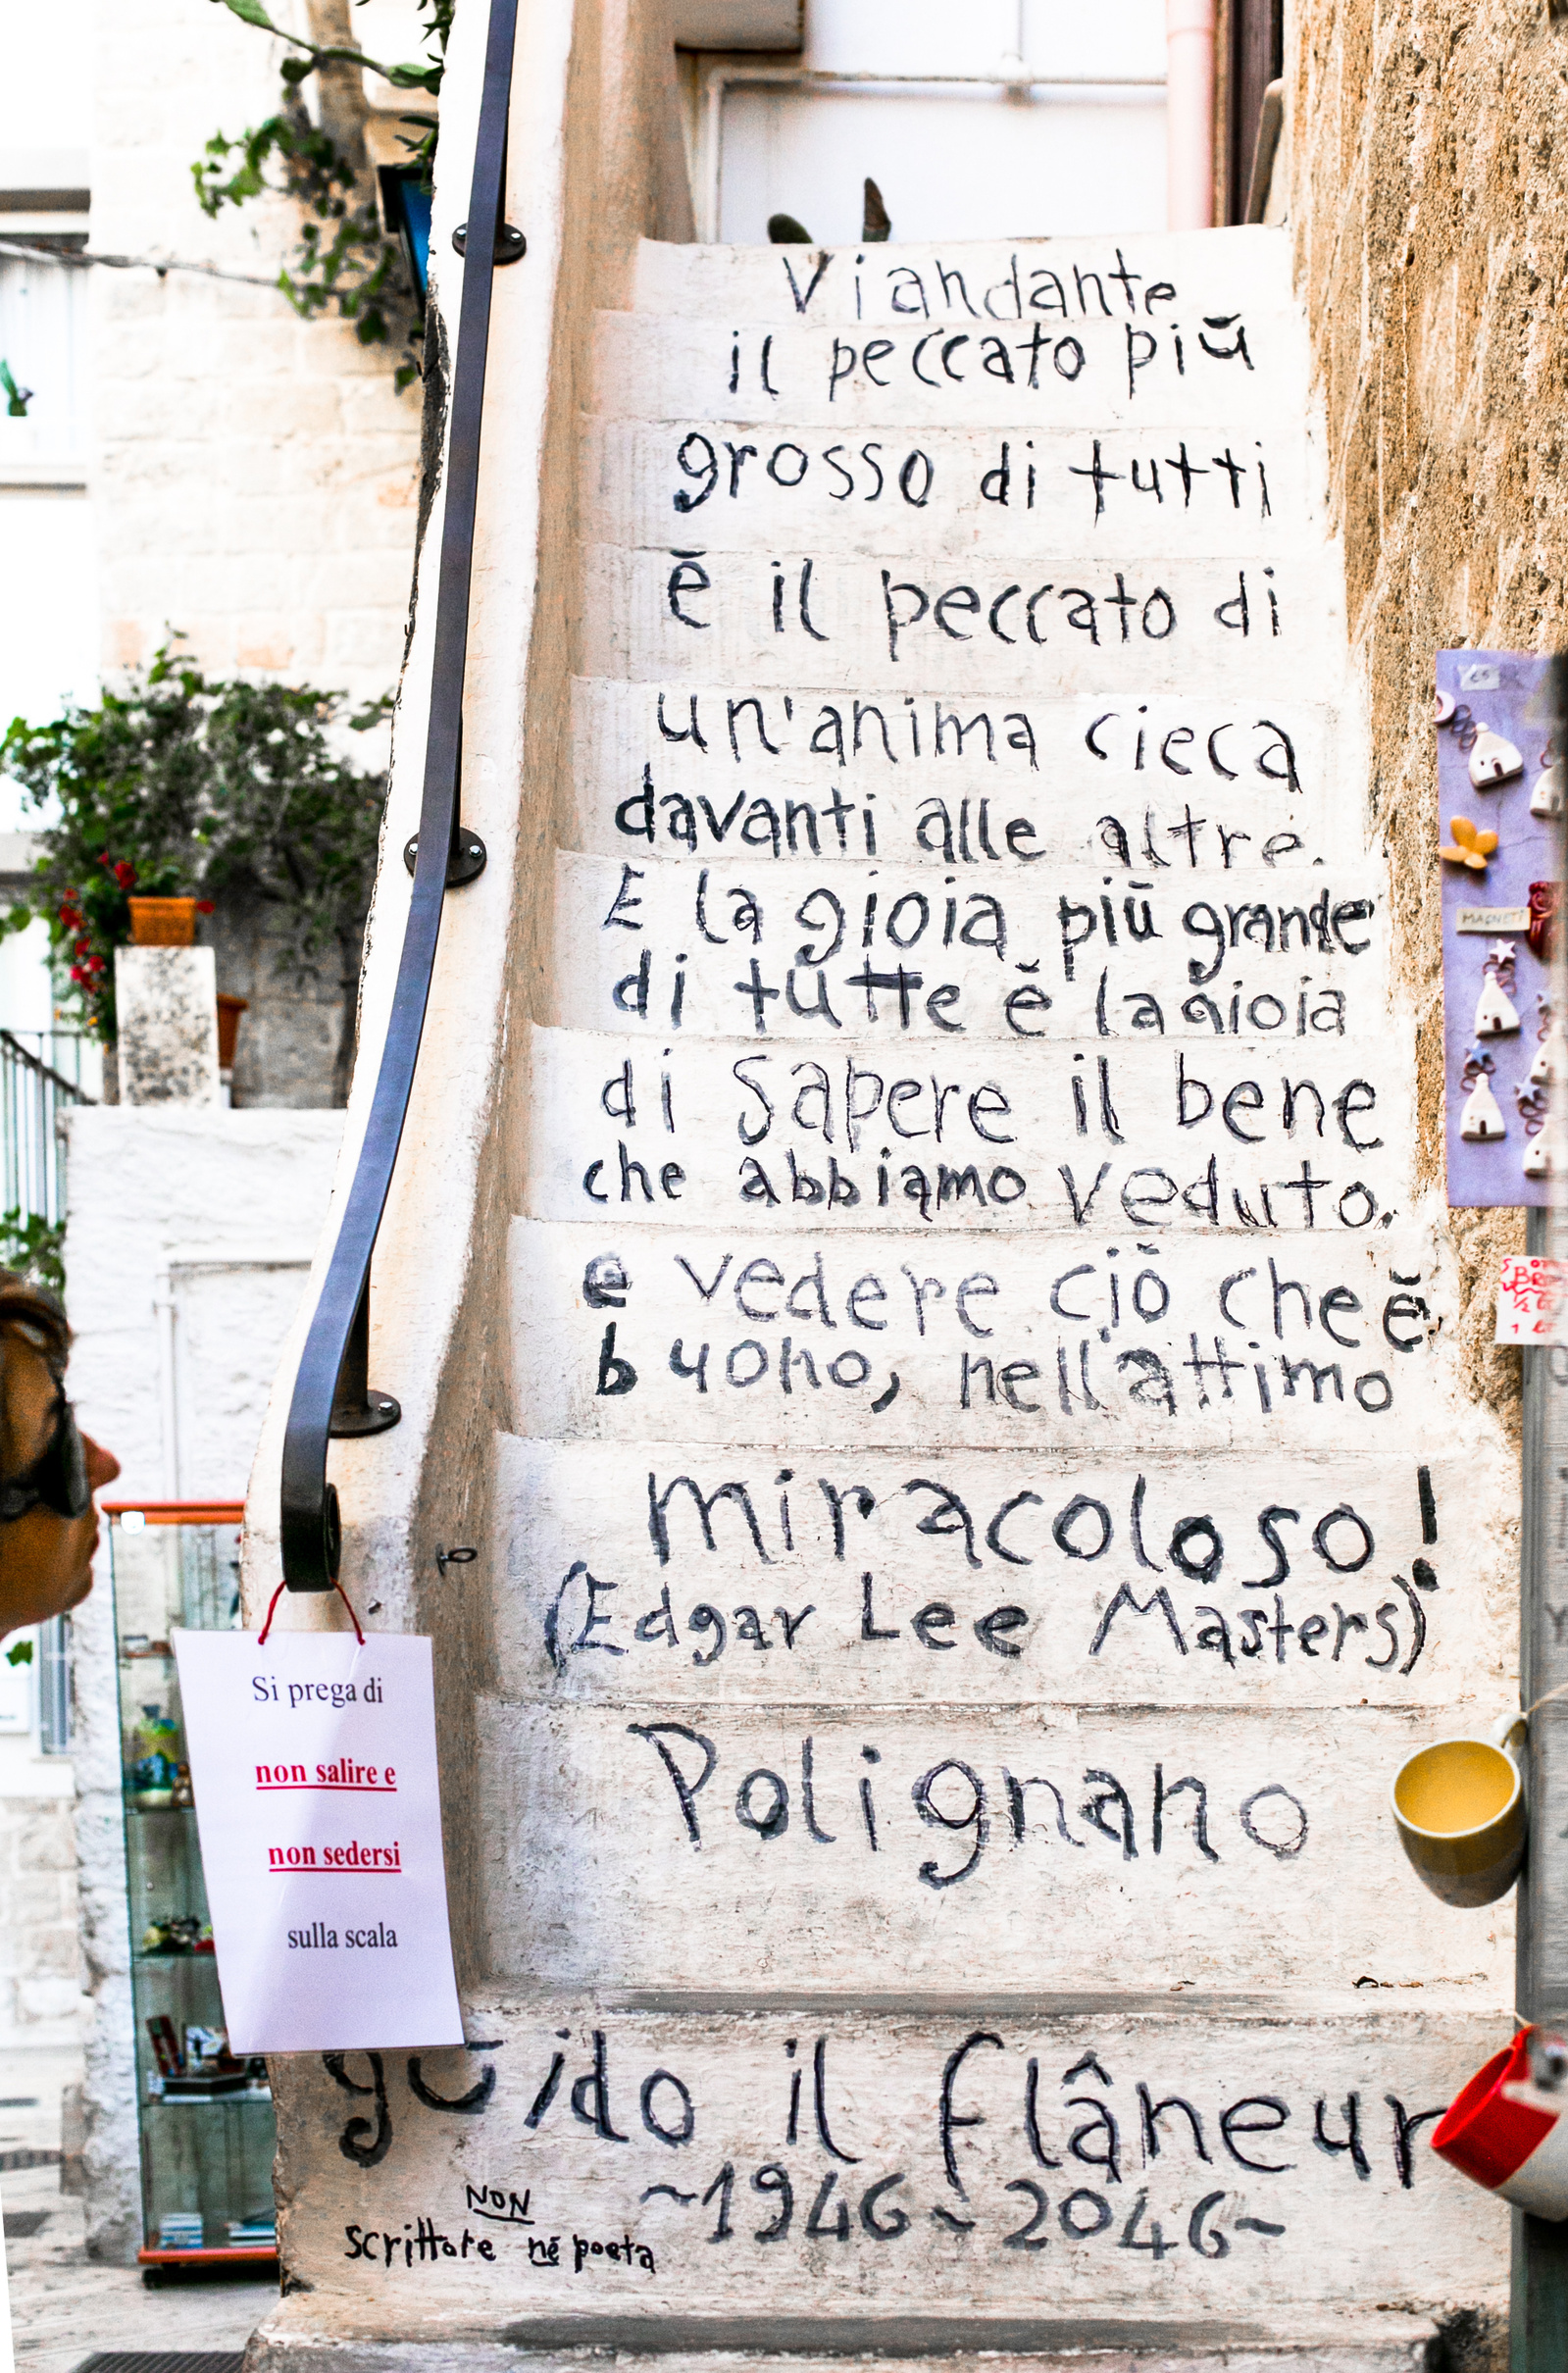 Viandante
il peccato più
grosso di tutti
è il peccato di
un'anima cieca
davanti alle altre.
E la gioia più grande
di tutte è la gioia
di sapere il bene
che abbiamo veduto.
e vedere ciò che è
buono, nell'attimo
miracoloso!
(Edgar Lee Masters)
Polignano
guido il flâneur
~1946~2046~
NON
scrittore né poeta
Si prega di
non salire e
non sedersi
sulla scala
MAGNETI